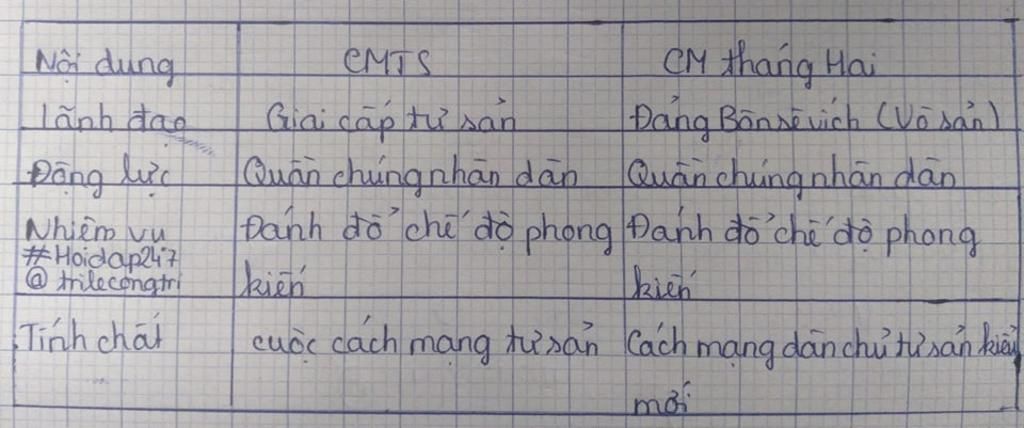 Nội dung CMTS CM tháng Hai
lãnh đạo Giai cấp tư sản Đảng Bônsêvích (Vô sản)
Động lực Quần chúng nhân dân Quần chúng nhân dân
Nhiệm vụ Đánh đổ chế độ phong Đánh đổ chế độ phong
#Hoidap247
@trilecongtri kiến kiến
Tính chất cuộc cách mạng tư sản Cách mạng dân chủ tư sản kiểu
mới